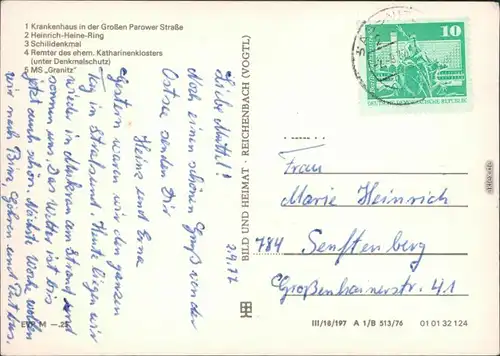 1 Krankenhaus in der Großen Parower Straße
2 Heinrich-Heine-Ring
3 Schilldenkmal
4 Remter des ehem. Katharinenklosters
(unter Denkmalschutz)
5 MS „Granitz"
2.9.77
Liebe Mutti!
Noch einen schönen Gruß von der
Ostsee senden Dir
Heinz und Erna
Gestern waren wir den ganzen
Tag in Stralsund. Heute liegen wir
wieder in Mukran am Strand und
sonnen uns. Das Wetter ist bis
jetzt auch schön. Nächste Woche wollen
wir nach Binz, Göhren und Putbus.
EVP M —.25
BILD UND HEIMAT · REICHENBACH (VOGTL)
10
DEUTSCHE DEMOKRATISCHE REPUBLIK
Frau
Marie Heinrich
784 Senftenberg
Großenhainerstr. 31
III/18/197 A 1/B 513/76 01 01 32 124